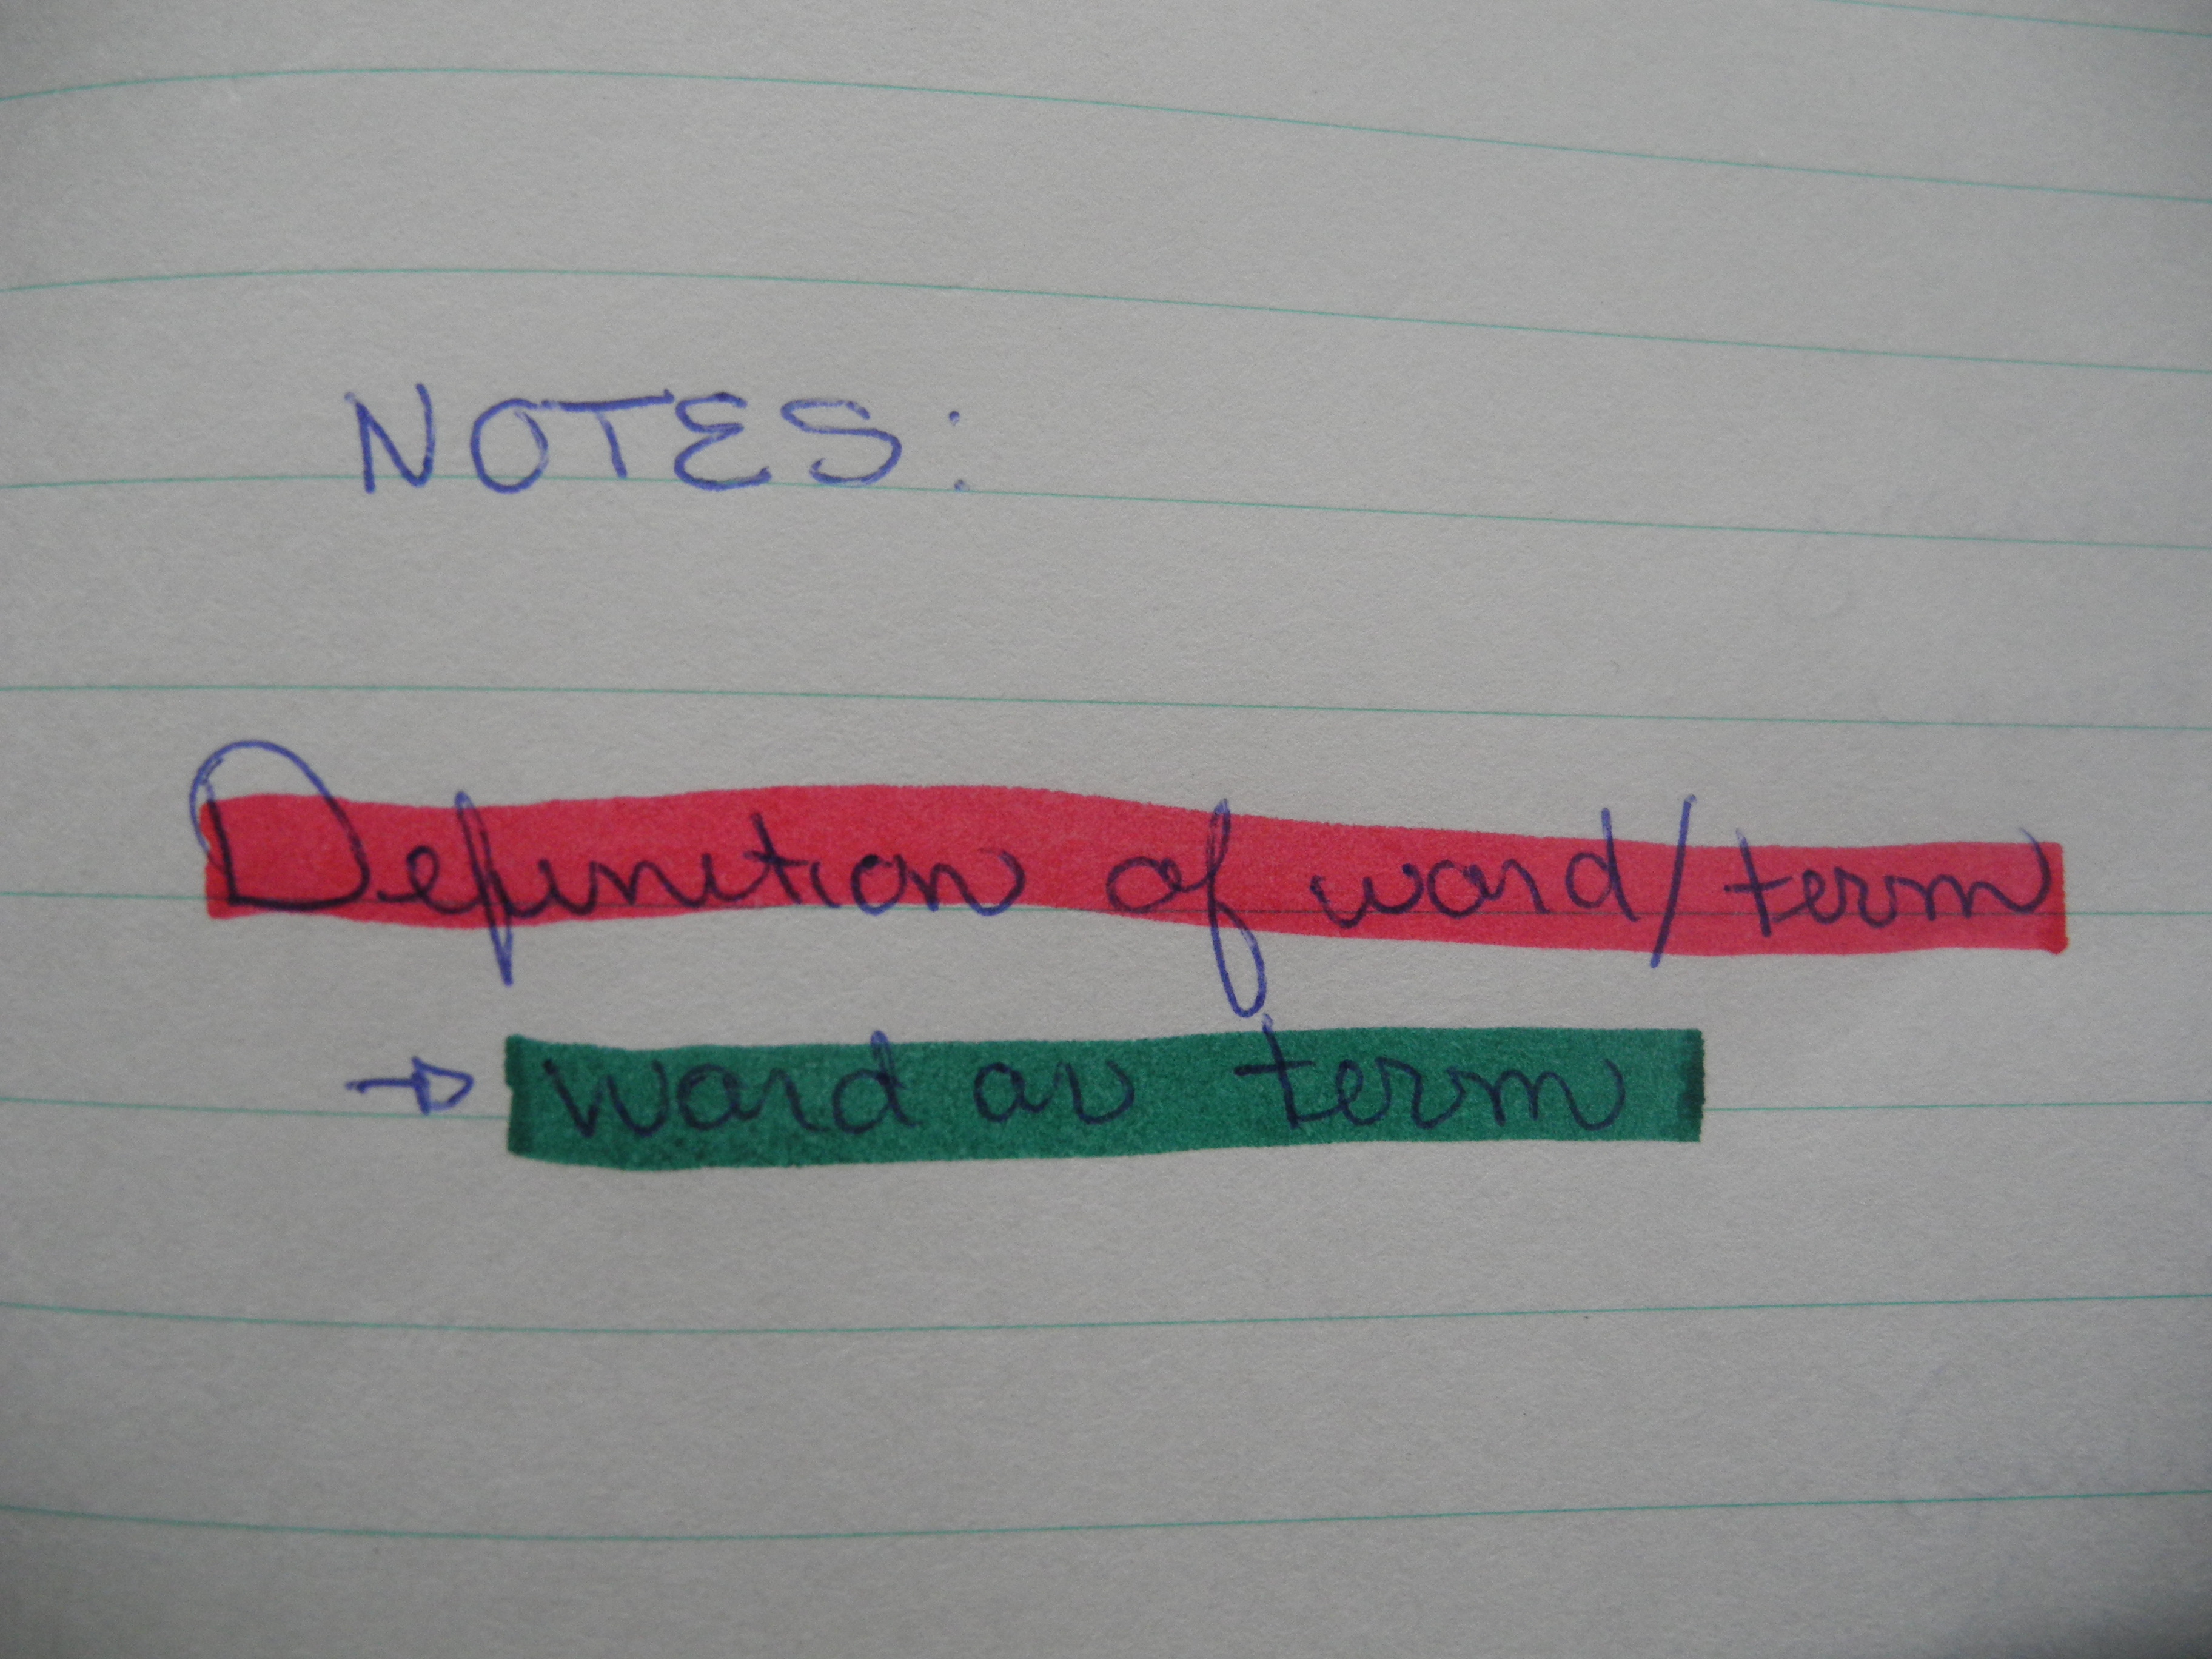 NOTES:
Definition of word/term
→ word or term